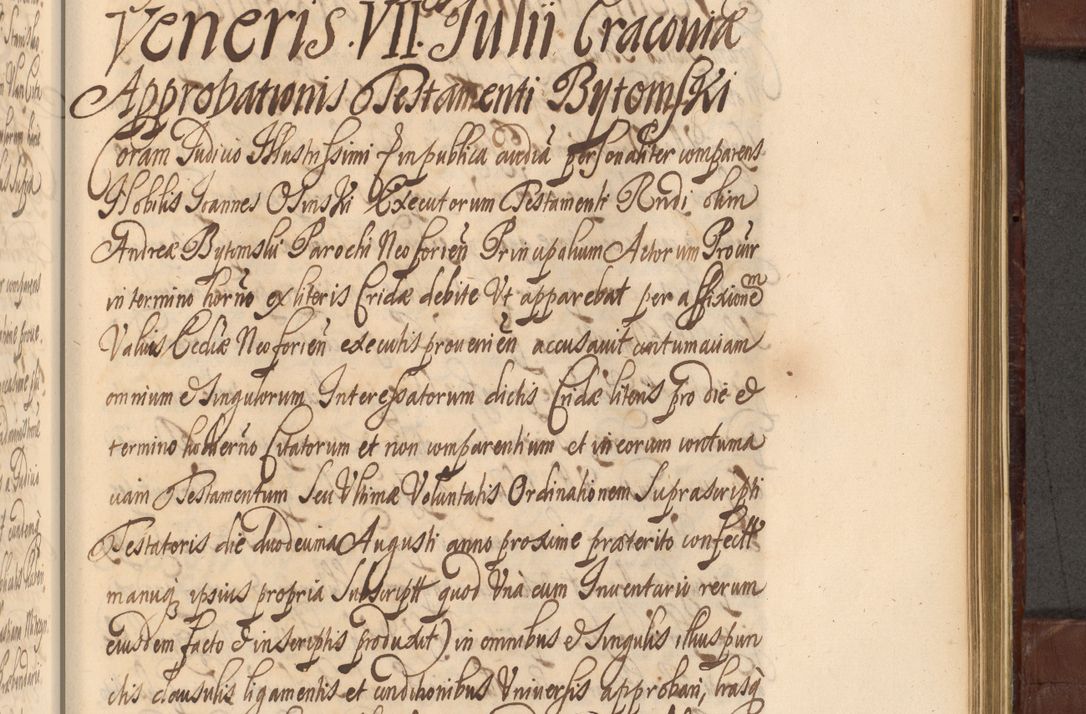 Veneris VII. Julii Cracoviæ
Approbationis Testamenti Bytomski
Coram Judicio Illustrissimi & in publica audiã personaliter comparens
Nobilis Joannes Osinski Executorum Testamenti Rndi olim
Andreæ Bytomski Parochi Neoforien̄ Principalium Actorum Procūr
in termino horño ex literis Cridæ debite Ut apparebat per affixionem
Valvis Ecclæ Neoforien̄ executis provenien̄ accusavit contumaciam
omnium & Singulorum Interessatorum dictis Cridæ literis pro die &
termino hodierño Citatorum et non comparentium et in eorum contuma
ciam Testamentum Seu Ultimæ Voluntatis Ordinationem Suprascripti
Testatoris die duodecima Augusti anno proxime præterito confectt
manuq̨ ipsius propria Subscriptt quod Unà cum Inventario rerum
eiusdem facto & in scriptis produxit) in omnibus & Singulis illius pun
ctis clausulis ligamentis et conditionibus Universis approbari, hasq̨